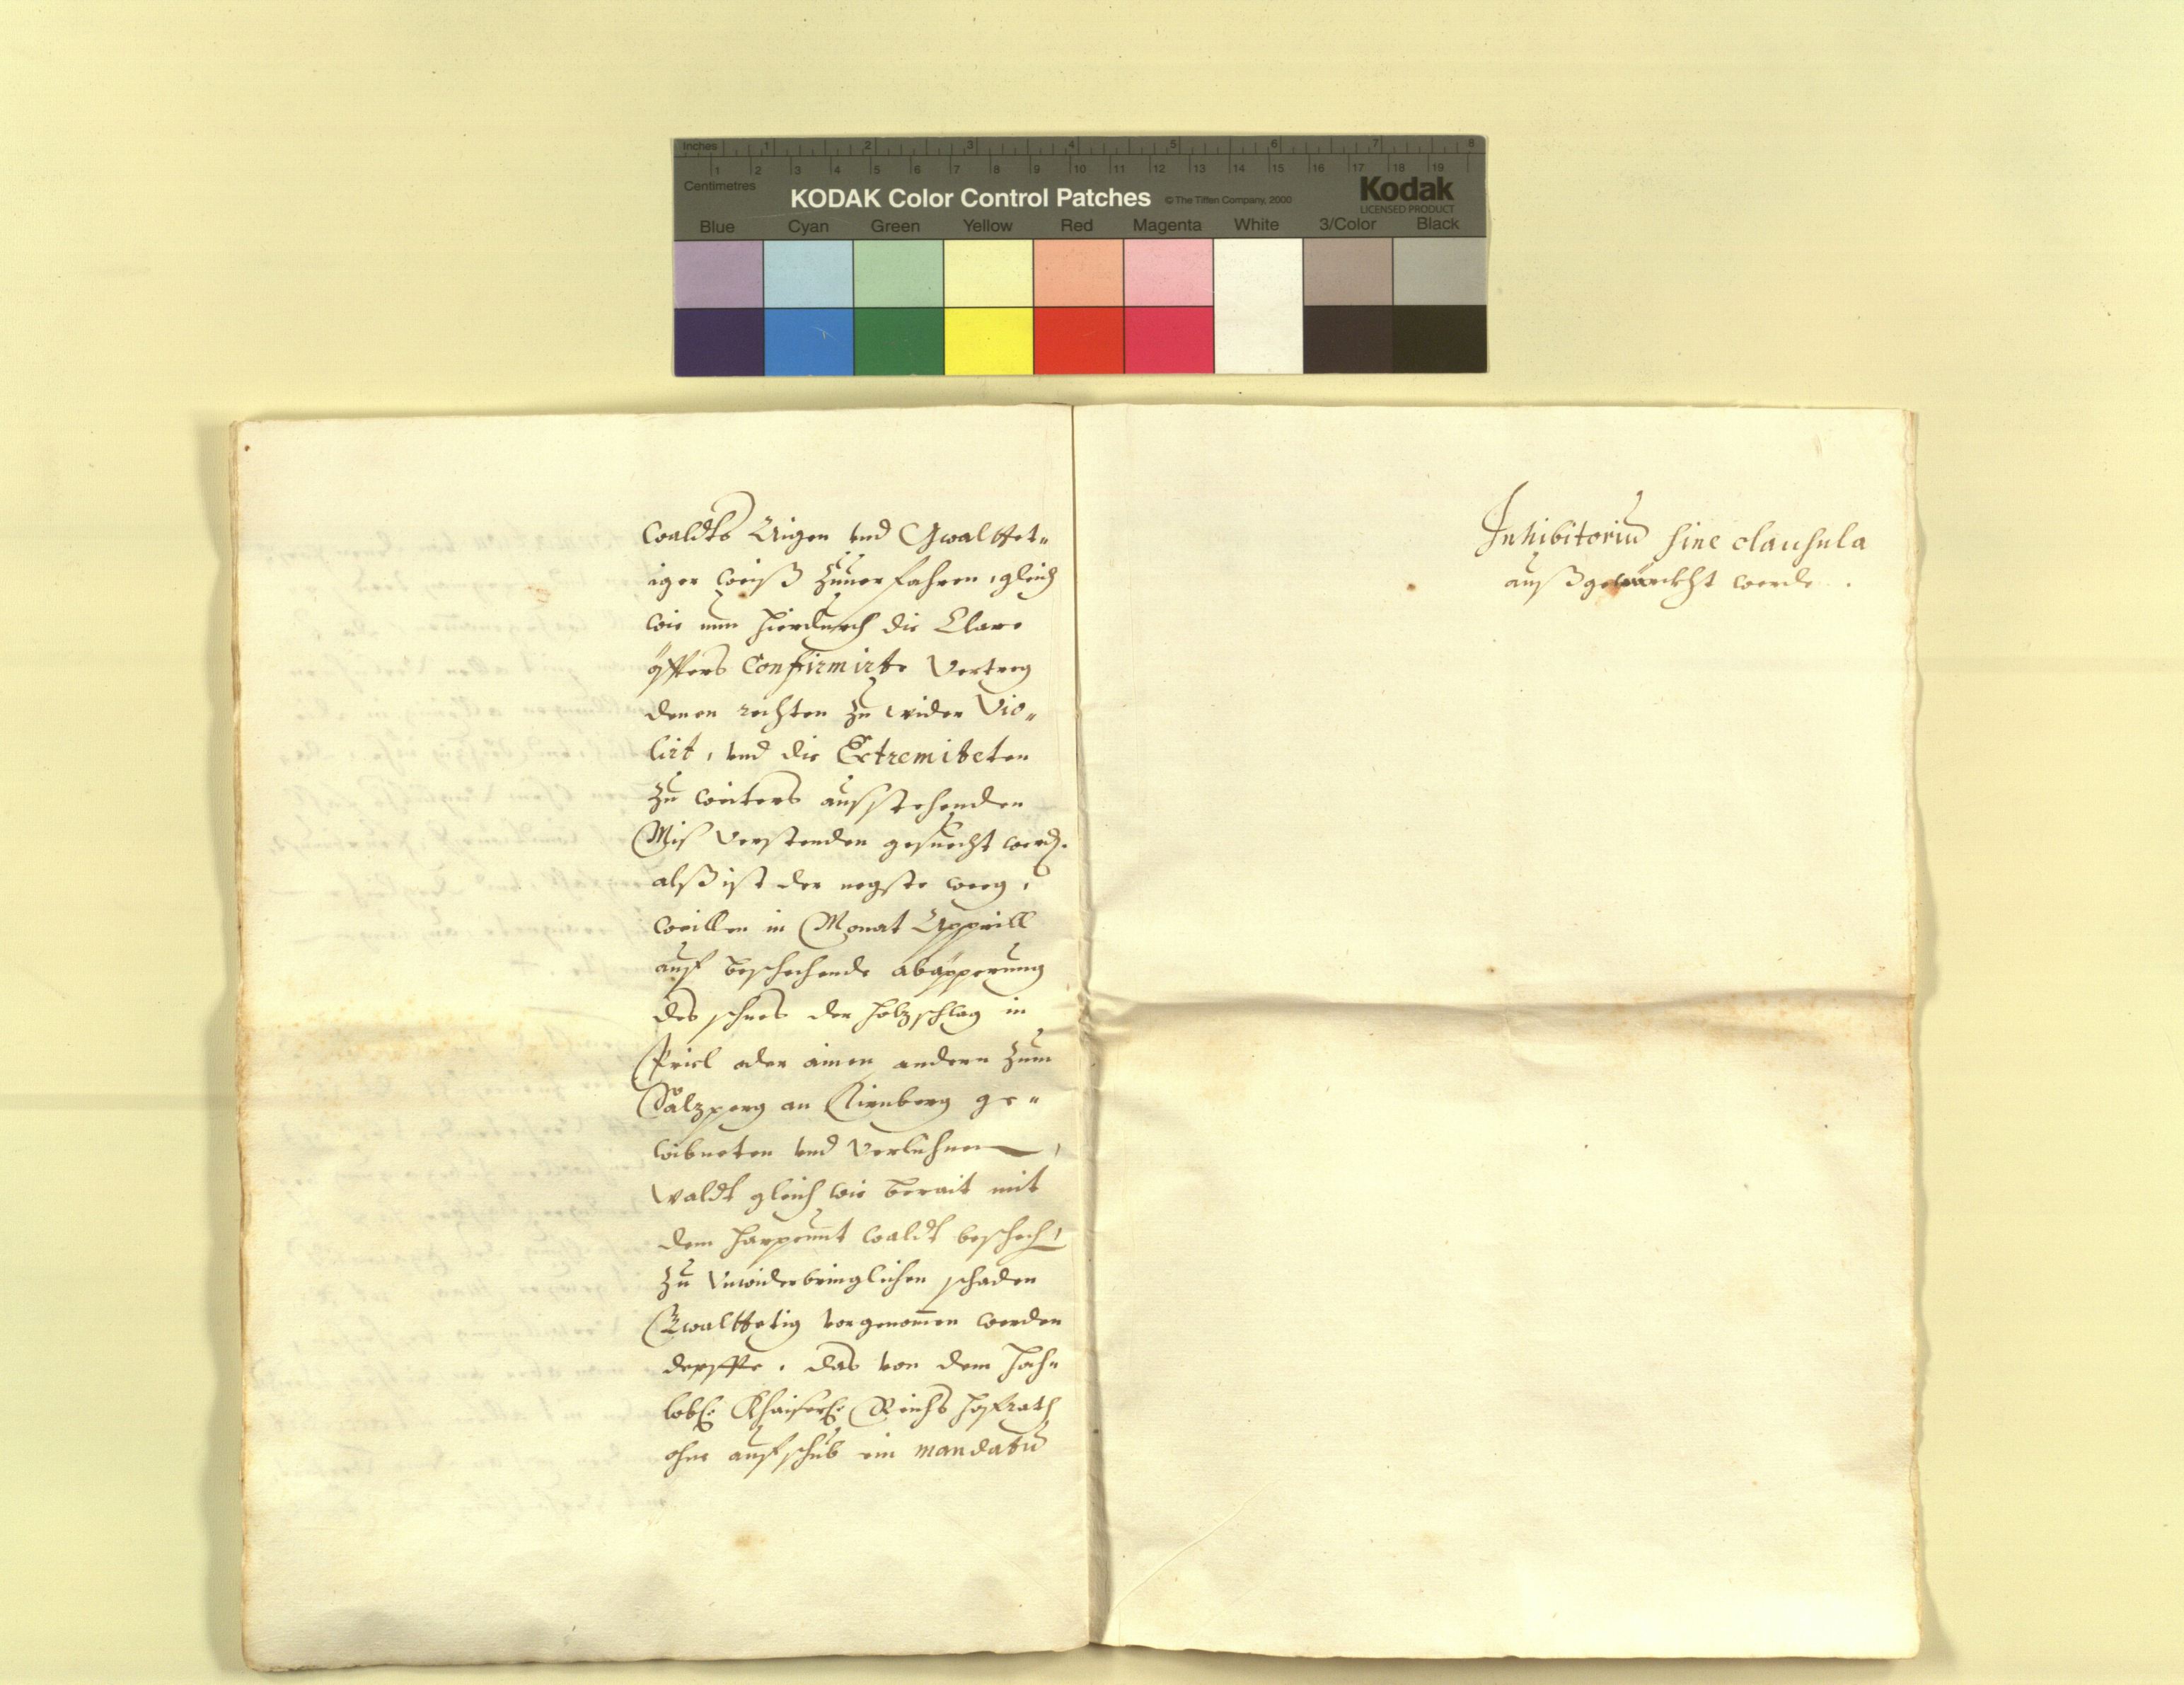 Inches 1 2 3 4 5 6 7 8
1 2 3 4 5 6 7 8 9 10 11 12 13 14 15 16 17 18 19
Centimetres
KODAK Color Control Patches © The Tiffen Company, 2000 Kodak
LICENSED PRODUCT
Blue Cyan Green Yellow Red Magenta White 3/Color Black
waldts Aigen vnd Gwalttet-
iger weiß zuuerfahren, gleich
wie nun hierdurch die Clare
öffters Confirmirte Vertreg
denen rechten zu wider Vio-
lirt, vnd die Extremiteten
zu weiters ausstehenden
Misverstenden gesuecht werd.
alß ist der negste weeg,
weillen in Monat Apprill
auf beschehende abäpperung
des schnes der holzschlag in
Priel oder ainen andern zum
Salzperg an Dirnberg ge-
widmeten vnd Verlichnen,
waldt gleich wie berait mit
dem Harpeunt waldt beschech,
zu Vnwiderbringlichen schaden
Gwalttetig vorgenomen werden
derffte, das von dem Hoch
lobl: Khaiserl: Reichs Hofrath
ohne aufschub ein mandatū
Inhibitoriū sine clausula
außgewürckht werde.